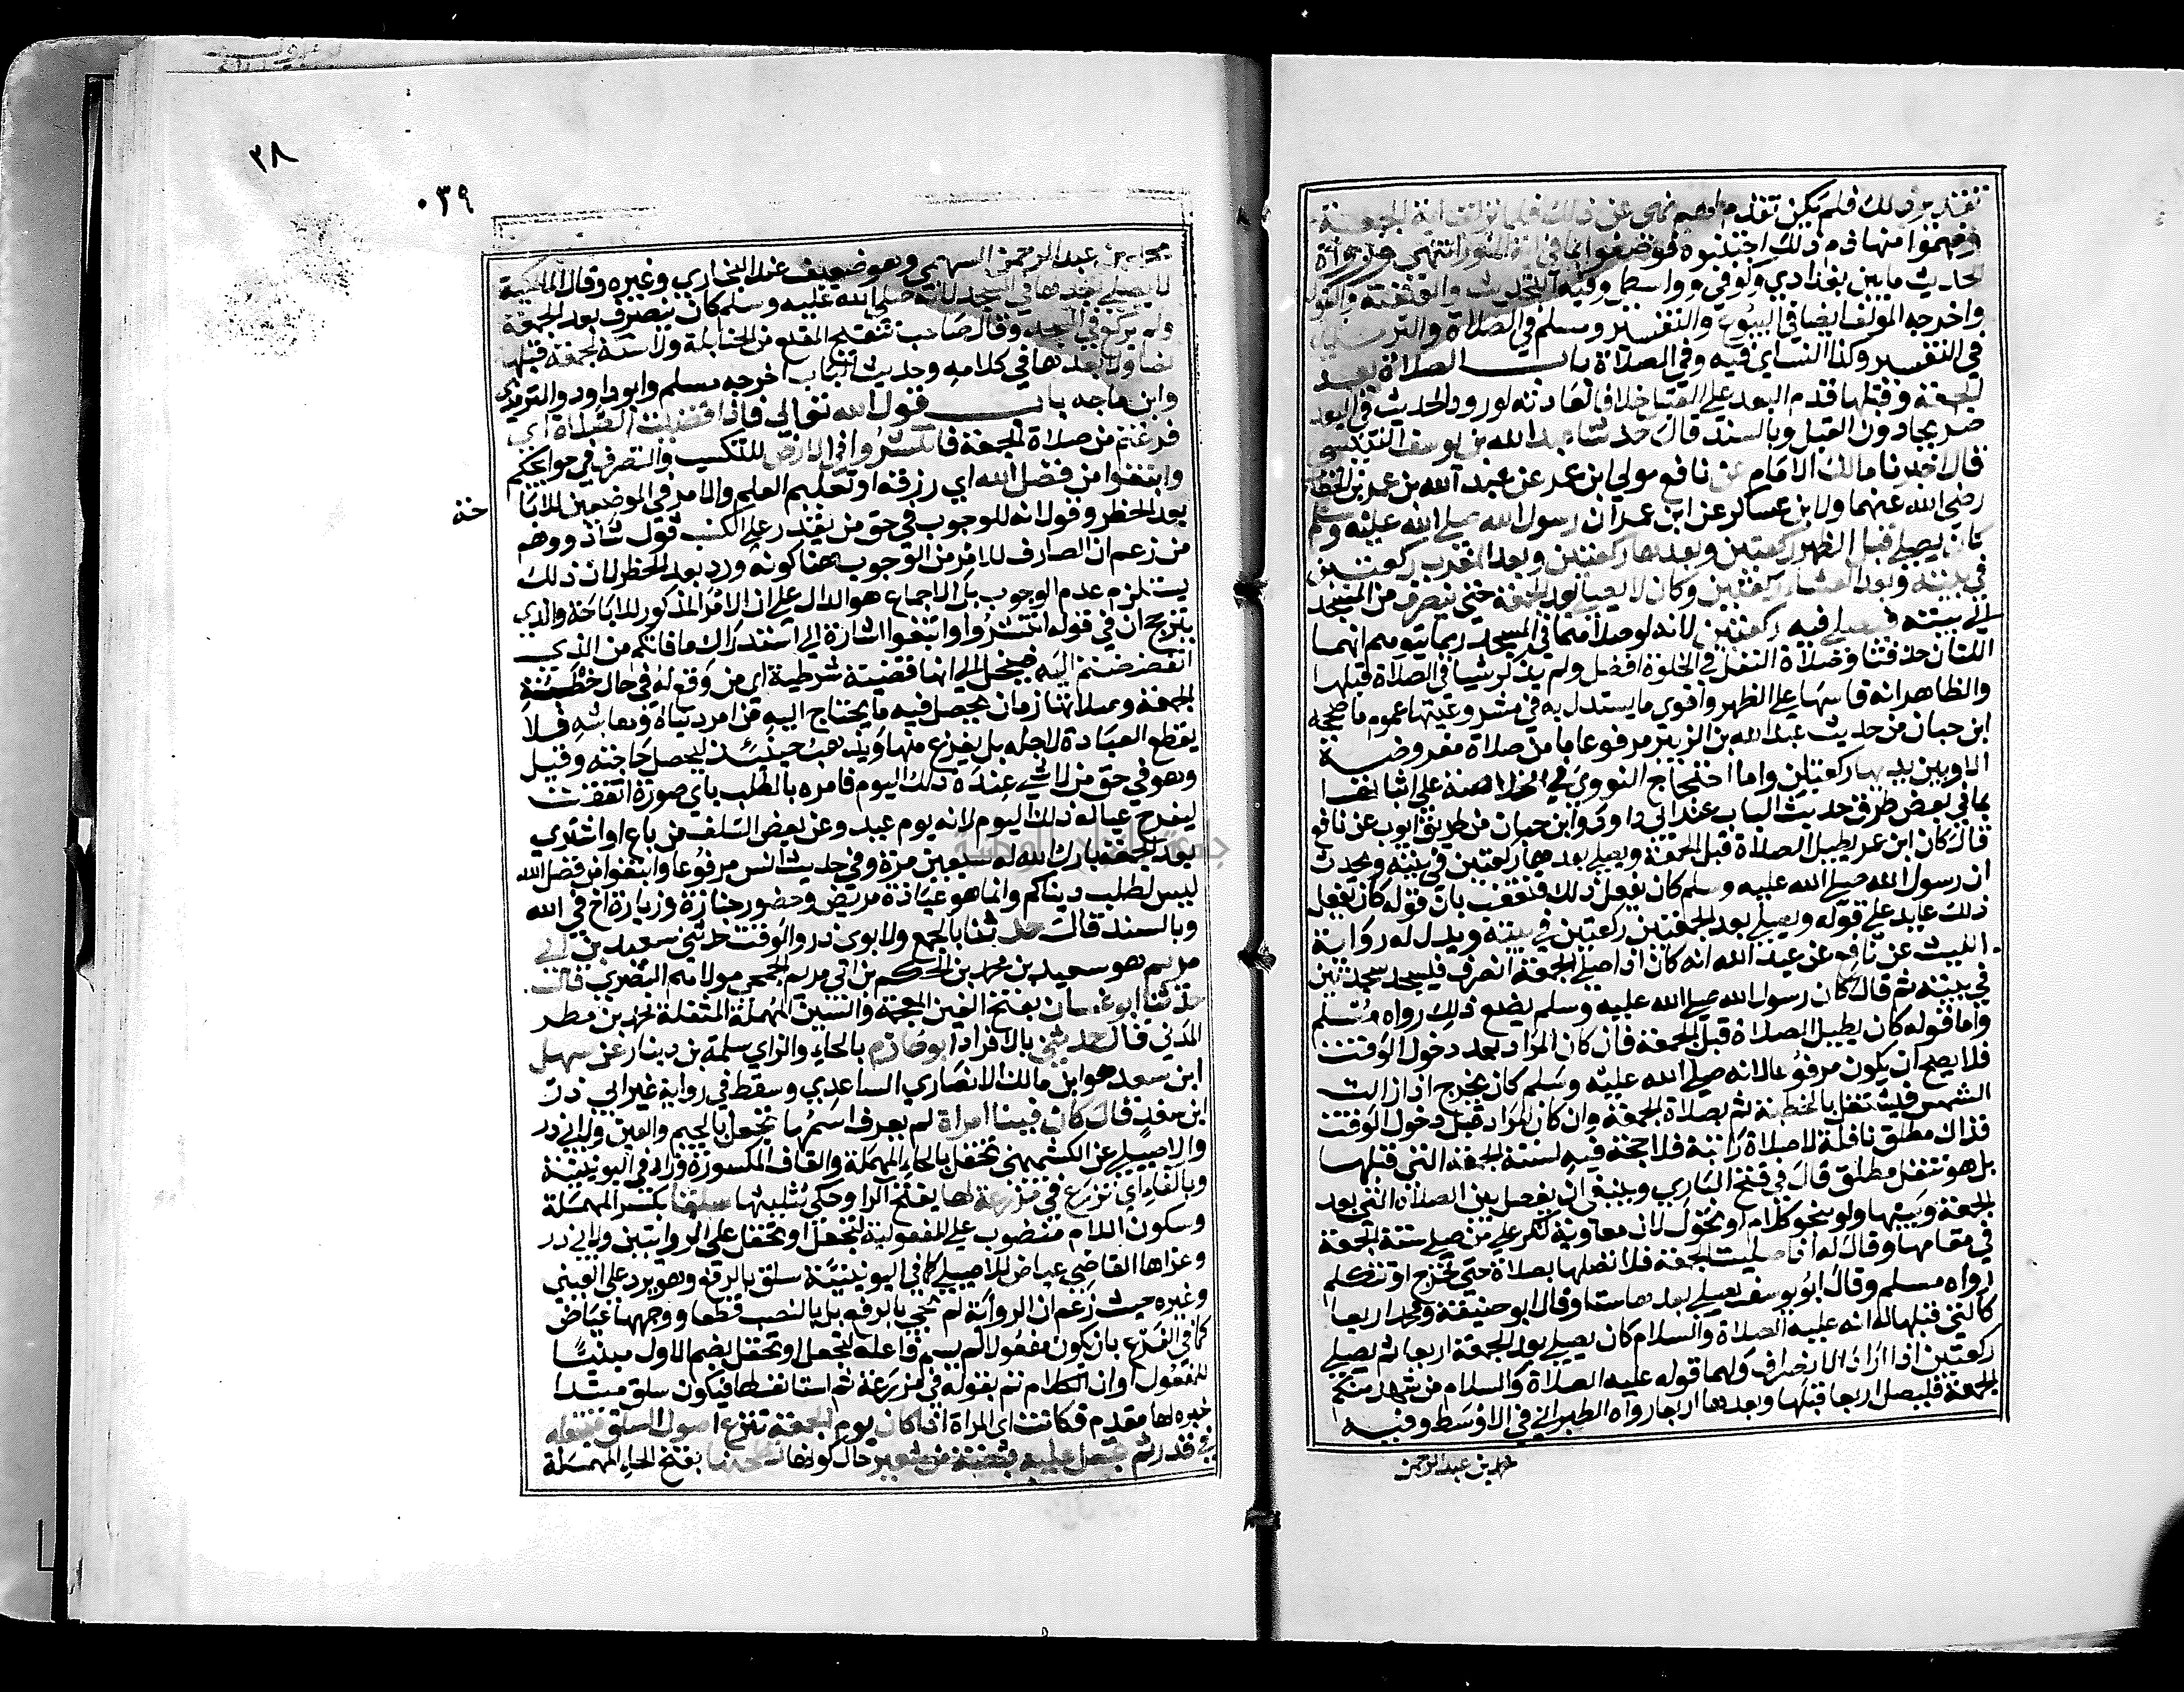 تقدير ذلك فلم يكن تقدم لهم نهي عن ذلك فلما نزلت اية الجمعة
وفهموا منها ذم ذلك اجتنبوه فوصفوا بما في اية النور انتهى ورواة
الحديث ما بين بغدادي وكوفي وواسطي وفيه التحديث والعنعنة والقول
واخرجه المؤلف ايضا في البيوع والتفسير ومسلم في الصلاة والترمذي
في التفسير وكذا النساي فيه وفي الصلاة باب الصلاة بعد
الجمعة وقبلها قدم البعد على القبل خلافا لعادته لورود الحديث في البعد
صريحا دون القبل وبالسند قال حدثنا عبد الله بن يوسف التنيسي
قال اخبرنا مالك الامام عن نافع مولي ابن عمر عن عبد الله بن عمر بن الخطاب
رضى الله عنهما ولابن عساكر عن ابن عمر ان رسول الله صلى الله عليه وسلم
كان يصلي قبل الظهر ركعتين وبعدها ركعتين وبعد المغرب ركعتين
في بيته وبعد العشاء ركعتين وكان لا يصلي بعد الجمعة حتى ينصرف من المسجد
الى بيته فيصلي فيه ركعتين لانه لو صلاهما في المسجد ربما يتوهم انهما
اللتان حذفتا وصلاة النفل في الخلوة افضل ولم يذكر شيا في الصلاة قبلها
والظاهر انه قاسها على الظهر واقوى ما يستدل به في مشروعيتها عموم ما صححه
ابن حبان من حديث عبد الله بن الزبير مرفوعا ما من صلاة مفروضة
الا وبين يديها ركعتان واما احتجاج النووي في الخلاصة على اثباتها
بما في بعض طرق حديث الباب عند ابي داود وابن حبان من طريق ايوب عن نافع
قال كان ابن عمر يطيل الصلاة قبل الجمعة ويصلي بعدها ركعتين في بيته ويحدث
ان رسول الله صلى الله عليه وسلم كان يفعل ذلك فتعقب بان قوله كان يفعل
ذلك عايد على قوله ويصلي بعد الجمعة ركعتين في بيته ويدل له رواية
الليث عن نافع عن عبد الله انه كان اذا صلى الجمعة انصرف فيسجد سجدتين
في بيته ثم قال كان رسول الله صلى الله عليه وسلم يصنع ذلك رواه مسلم
واما قوله كان يطيل الصلاة قبل الجمعة فان كان المراد بعد دخول الوقت
فلا يصح ان يكون مرفوعا لانه صلى الله عليه وسلم كان يخرج اذا زالت
الشمس فيشتغل بالخطبة ثم بصلاة الجمعة وان كان المراد قبل دخول الوقت
فذاك مطلق نافلة لا صلاة راتبة فلا حجة فيه لسنة الجمعة التي قبلها
بل هو تنفل مطلق قال في فتح الباري وينبغي ان يفصل بين الصلاة التي بعد
الجمعة وبينها ولو بنحو كلام او تحول لان معاوية انكر على من صلى سنة الجمعة
في مقامها وقال له اذا صليت الجمعة فلا تصلها بصلاة حتى تخرج او تتكلم
رواه مسلم وقال ابو يوسف يصلي بعدها ستا وقال ابو حنيفة ومحمد اربعا
كالتي قبلها له انه عليه الصلاة والسلام كان يصلي بعد الجمعة اربعا ثم يصلي
ركعتين اذا اراد الانصراف ولهما قوله عليه الصلاة والسلام من شهد منكم
الجمعة فليصل اربعا قبلها وبعدها اربعا رواه الطبراني في الاوسط وفيه
محمد بن عبد الرحمن
٣٨
٠٣٩
محمد بن عبد الرحمن السهمي وهو ضعيف عند البخاري وغيره وقال المالكية
لا يصلي بعدها في المسجد لانه صلى الله عليه وسلم كان ينصرف بعد الجمعة
ولم يركع في المسجد وقال صاحب تنقيح المقنع من الحنابلة ولا سنة لجمعة قبلها
نصا وما بعدها في كلامه وحديث الباب اخرجه مسلم وابو داود والترمذي
وابن ماجه باب قول الله تعالى فاذا قضيت الصلاة اي
فرغتم من صلاة الجمعة فانتشروا في الارض للتكسب والتصرف في حوايجكم
وابتغوا من فضل الله اي رزقه او تعليم العلم والامر في الموضعين للابا
حة
بعد الحظر وقول انه للوجوب في حق من يقدر على الكسب قول شاذ ووهم
من زعم ان الصارف للامر من الوجوب هنا كونه ورد بعد الحظر لان ذلك
يستلزم عدم الوجوب بل الاجماع هو الدال على ان الامر المذكور للاباحة والذي
يترجح ان في قوله انتشروا وابتغوا اشارة الي استدراك ما فاتكم من الذي
انفضضتم اليه فينحل الي انها قضية شرطية اي من وقع له في حال خطبة
الجمعة وصلاتها زمان يحصل فيه ما يحتاج اليه من امر دنياه ومعاشه فلا
يقطع العبادة لاجله بل يفرغ منها ويذهب حينئذ ليحصل حاجته وقيل
وهو في حق من لا شي عنده ذلك اليوم فامره بالطلب باي صورة اتفقت
ليفرح عياله ذلك اليوم لانه يوم عيد وعن بعض السلف من باع او اشترى
بعد الجمعة بارك الله له سبعين مرة وفي حديث انس مرفوعا وابتغوا من فضل الله
ليس لطلب دنياكم وانما هو عيادة مريض وحضور جنازة وزيارة اخ في الله
وبالسند قال حدثنا بالجمع ولابوي ذر والوقت حدثني سعيد بن ابي
مريم هو سعيد بن محمد بن الحكم بن ابي مريم الجمحي مولاهم المصري قال
حدثنا ابو غسان بفتح الغين المعجمة والسين المهملة المثقلة محمد بن مطر
المدني قال حدثني بالافراد ابو حازم بالحاء والزاي سلمة بن دينار عن سهل
ابن سعد هو ابن مالك الانصاري الساعدي وسقط في رواية غير ابي ذر
ابن سعد قال كان فينا امراة لم يعرف اسمها تجعل بالجيم والعين ولابي ذر
والاصيلي عن الكشميهني تحقل بالحاء المهملة والقاف المكسورة وزاد في اليونينية
وبالفاء اي تزرع في مزرعة لها بفتح الرا وحكى تثليثها سلقا بكسر المهملة
وسكون اللام منصوب على المفعولية لتجعل او تحقل على الروايتين ولابي ذر
وعزاها القاضي عياض للاصيلي كما في اليونينية سلق بالرفع وهو يرد على العيني
وغيره حيث زعم ان الرواية لم تجي بالرفع بل بالنصب قطعا ووجهها عياض
كما في الفرع بان يكون مفعولا لم يسم فاعله لتجعل او تحقل بضم الاول مبنيا
للمفعول او ان الكلام تم بقوله في مزرعة ثم استانف لها فيكون سلق مبتدا
خبره لها مقدم فكانت اي المراة اذا كان يوم الجمعة تنزع اصول السلق فتجعله
في قدر ثم تجعل عليه قبضة من شعير حال كونها تطحنها بفتح الحاء المهملة